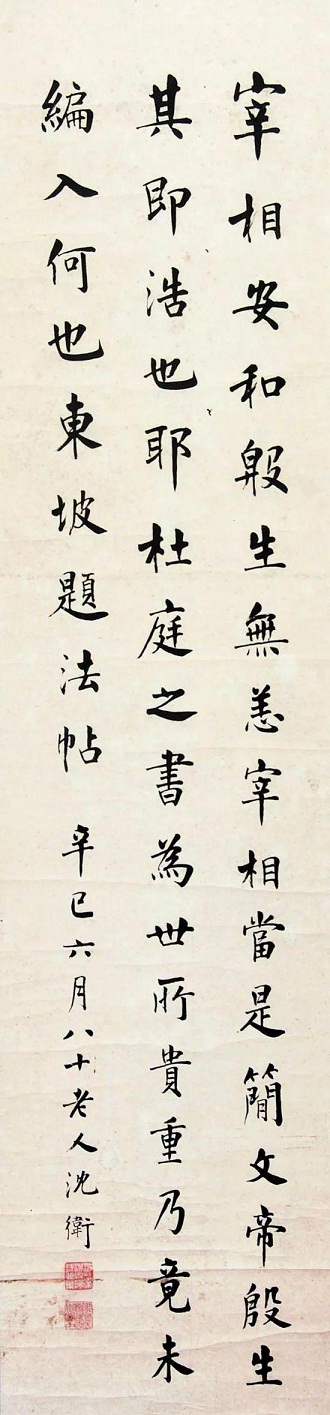 宰相安和殷生無恙宰相當是簡文帝殷生
其即浩也耶杜庭之書為世所貴重乃竟未
編入何也東坡題法帖
辛巳六月八十老人沈衛